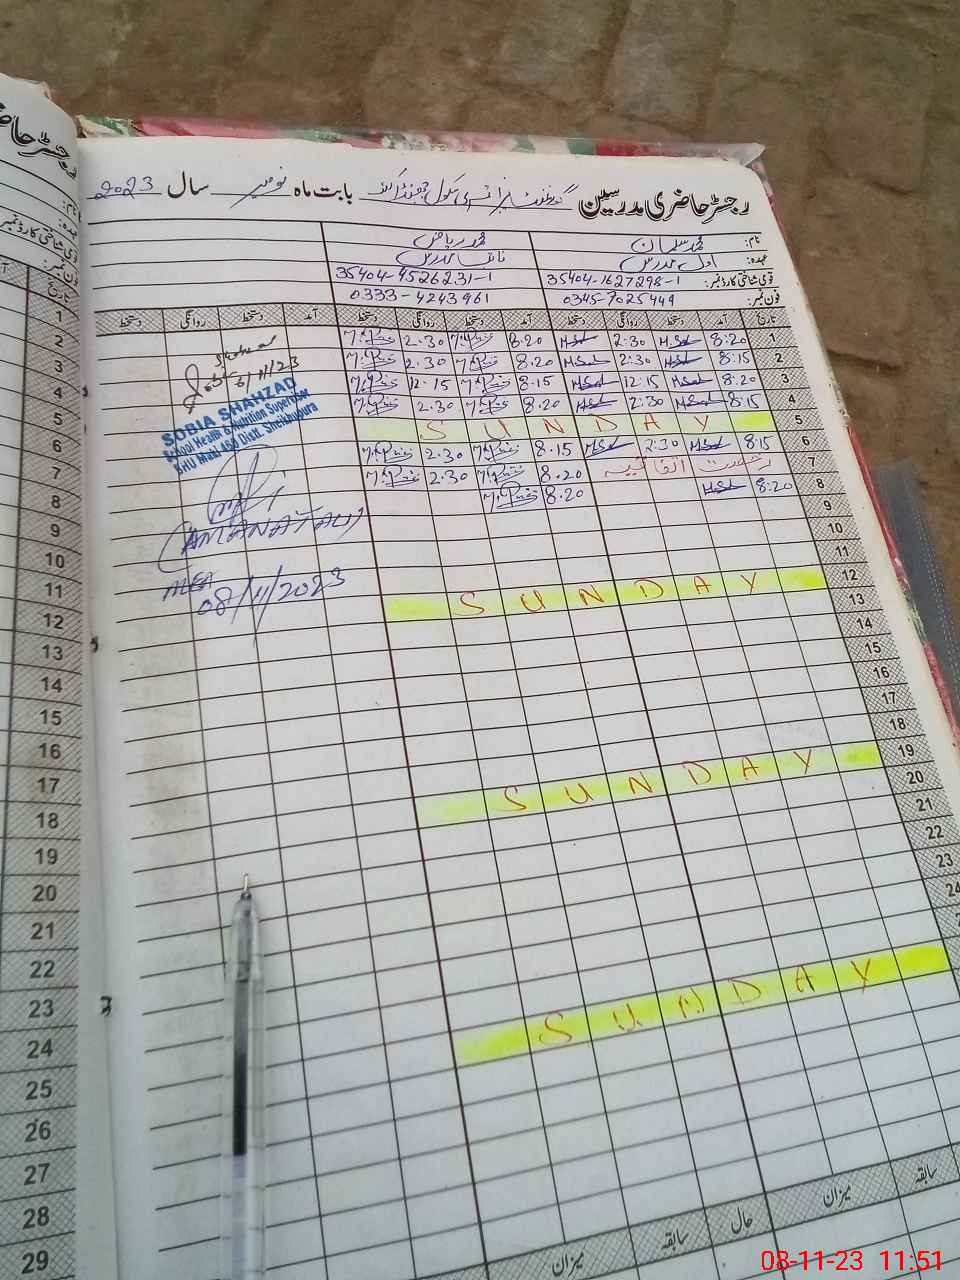 رجسٹر حاضری مدرسین گورنمنٹ پرائمری سکول بابت ماہ نومبر سال 2023
نام: محمد سلمان محمد ریاض
عہدہ: اول مدرس نائب مدرس
قومی شناختی کارڈ نمبر: 35404-1627298-1 35404-4526231-1
فون نمبر: 0345-7025449 0333-4243961
تاریخ آمد دستخط روانگی دستخط آمد دستخط روانگی دستخط آمد دستخط روانگی دستخط
1 8:20 2:30 8.20 2.30
2 8:15 2:30 8.20 2.30
3 8:20 12:15 8.15 12.15
4 8:15 2:30 8.20 2.30
5 S U N D A Y
6 8:15 2:30 8.15 2.30
7 رخصت اتفاقیہ 8.20 2.30
8 8:20 8.20
9
10
11
12 S U N D A Y
13
14
15
16
17
18
19 S U N D A Y
20
21
22
23
24
S U N D A Y
سابقہ میزان حال سابقہ میزان
6/11/23
SOBIA SHAHZAD
School Health & Nutrition Supervisor
BHU Maki 460 Distt. Sheikhupura
(AMANAT ALI)
MEA
08/11/2023
رجسٹر حاضر
نام:
عہدہ:
قومی شناختی کارڈ نمبر
فون نمبر:
تاریخ
1
2
3
4
5
6
7
8
9
10
11
12
13
14
15
16
17
18
19
20
21
22
23
24
25
26
27
28
29
08-11-23 11:51